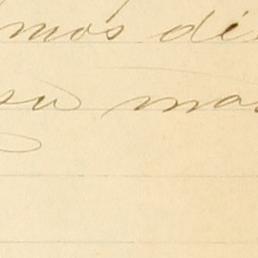 mos di
su mas